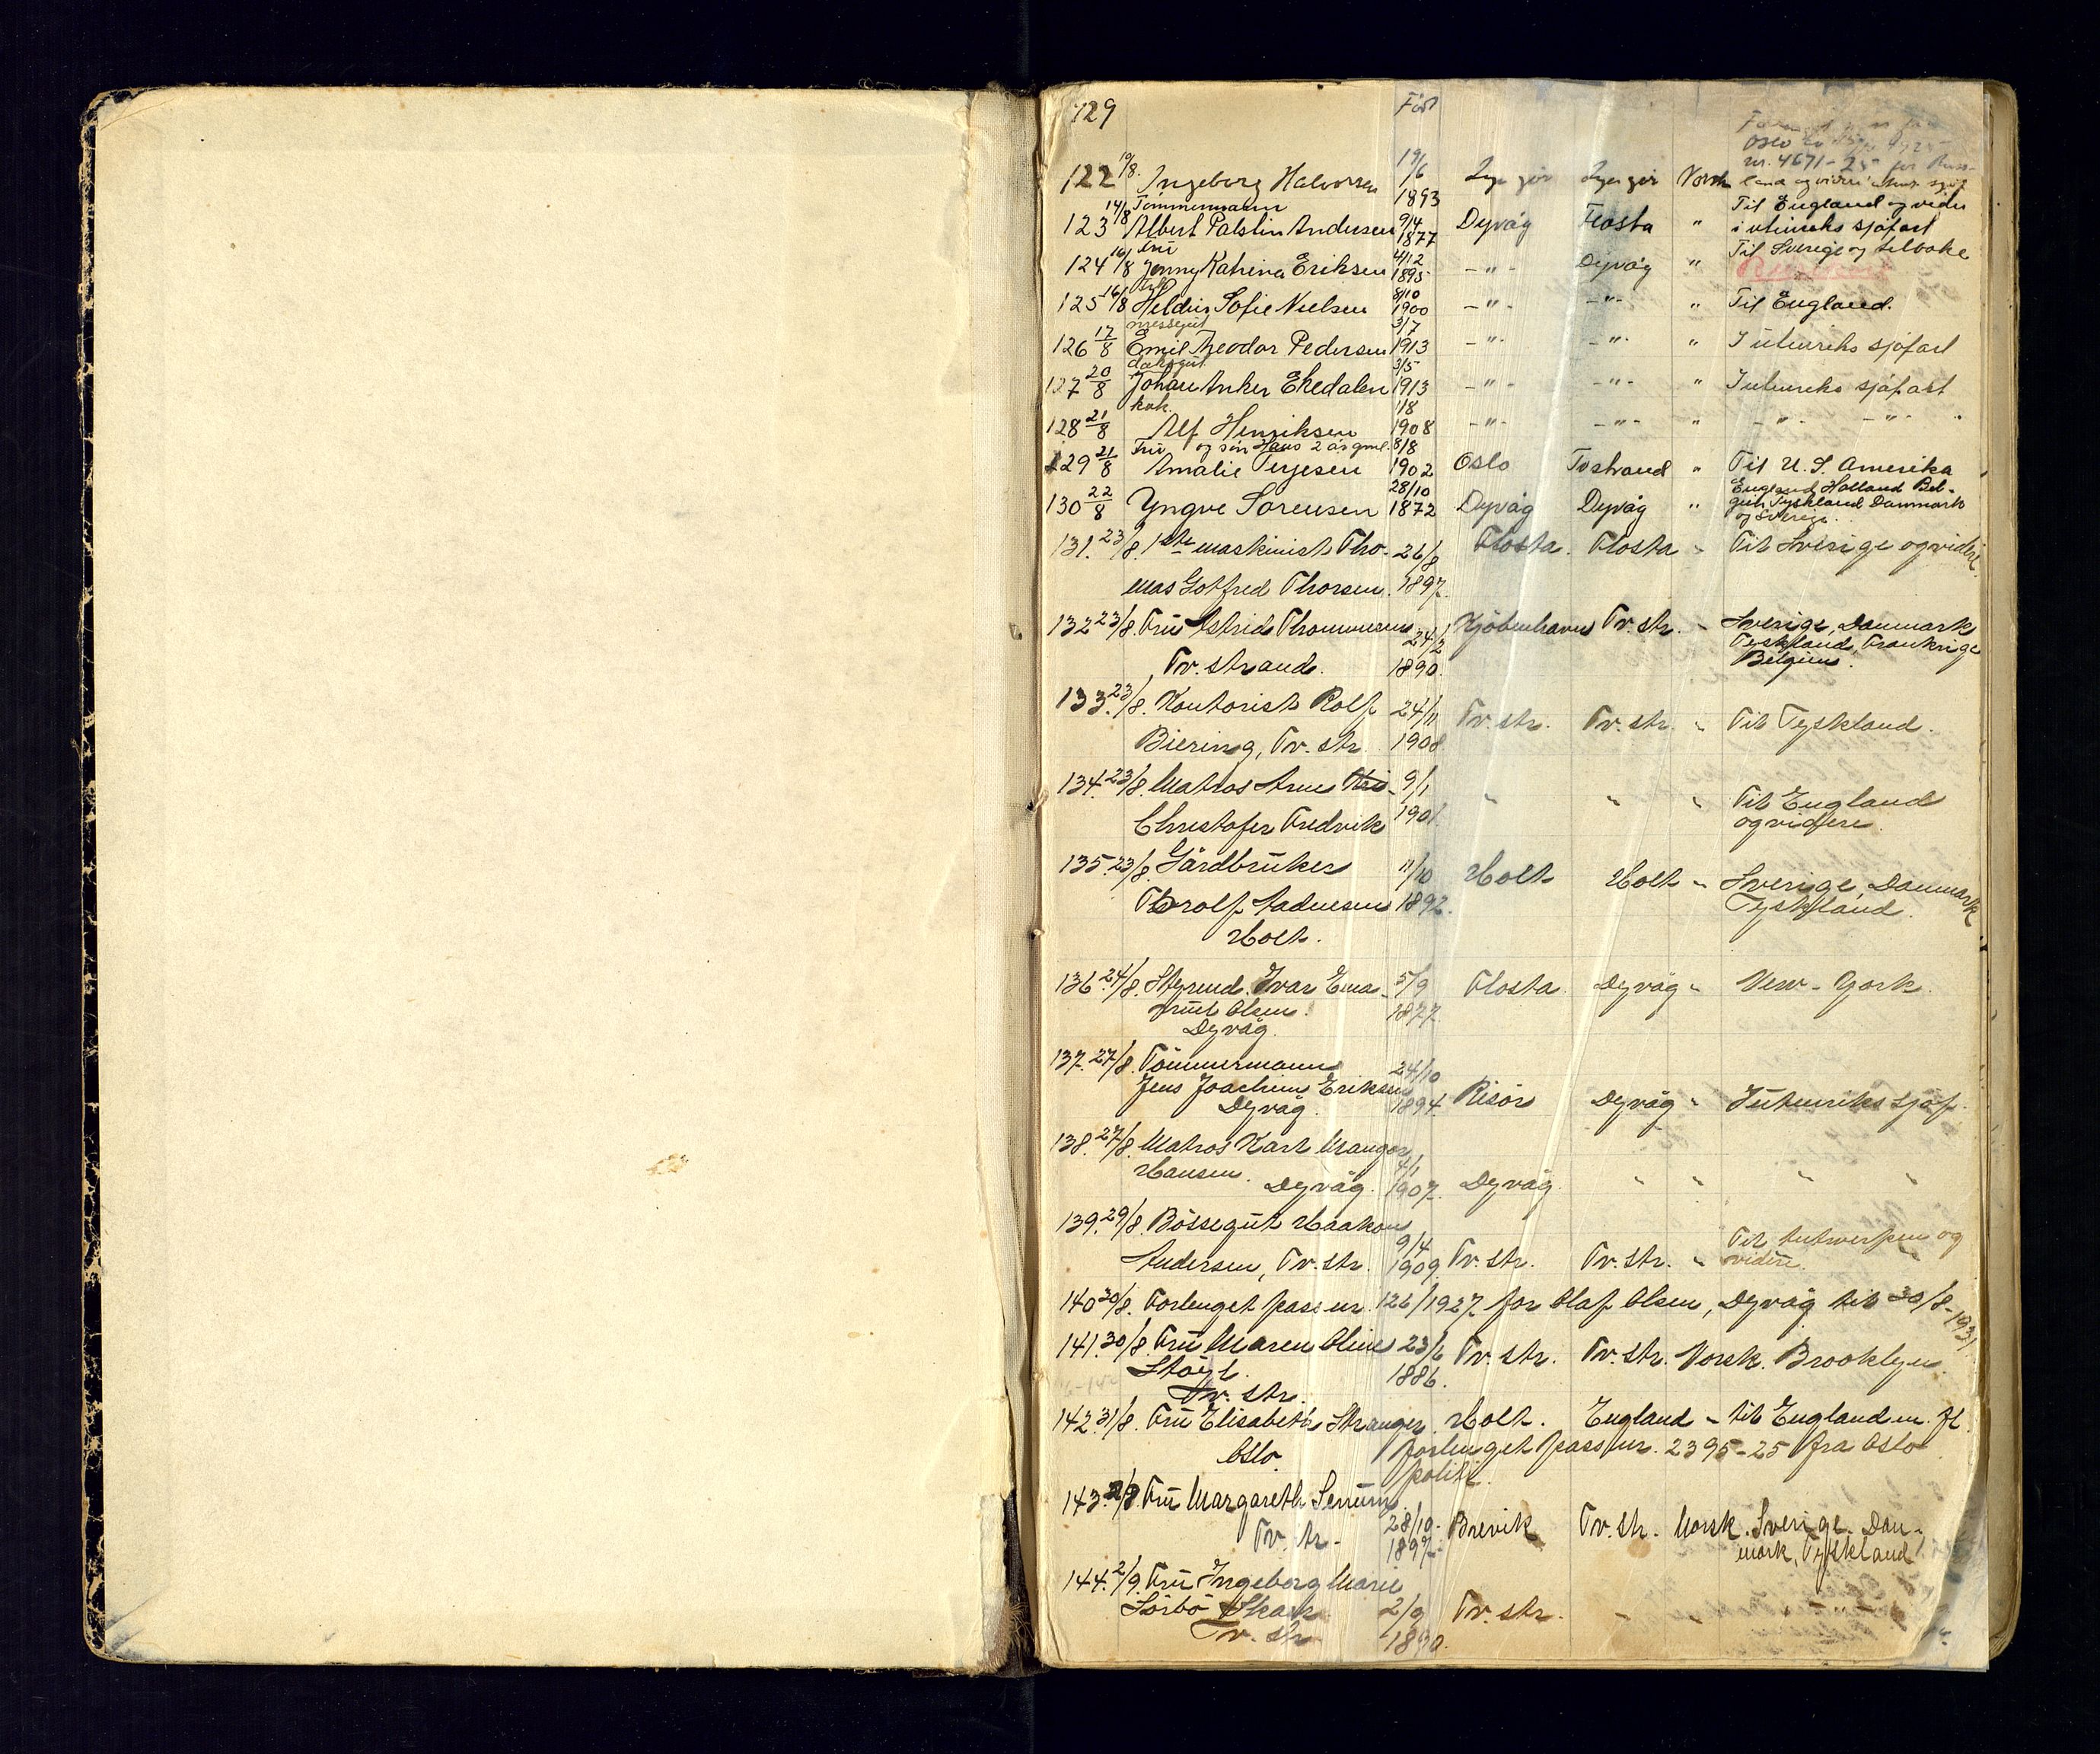 129 Född
Oslo
nr. 4671-25 for Russ-
122 19/8. Ingeborg Halvorsen 19/6 1893 Lyngör Lyngör Norsk land og videre
Tömmermann Til England og videre
123 14/8 Albert Palstin Andersen 9/4 1877 Dyvåg Flosta " i utenriks sjöfart
fru Til Sverige og tilbake
124 16/8 Jenny Katrina Eriksen 4/12 1895 -"- Dyvåg "
125 16/8 Heldur Sofie Nielsen 8/10 1900 -"- -"- " Til England.
messegut
126 17/8 Emil Theodor Pedersen 3/7 1913 -"- -"- " I utenriks sjöfart
dekksgut
127 20/8 Johan Anker Ekedalen 3/5 1913 -"- -"- " I utenriks sjöfart
kok.
128 21/8 Alf Henriksen 1/8 1908 -"- -"- " -"- -"-
Fru og sön Hans 2 år gml.
129 21/8 Amalie Terjesen 8/8 1902 Oslo Tvstrand " Til U. S. Amerika
England, Holland Bel-
130 22/8 Yngve Sörensen 28/10 1872 Dyvåg Dyvåg " gien Tyskland Danmark
og Sverige.
131. 23/8. 1ste maskinist Tho- 26/8 Flosta. Flosta " Til Sverige og videre.
mas Gotfred Thorsen. 1897.
132 23/8. Fru Astrid Thommesen 24/2 Kjöbenhavn Tv. str. " Sverige, Danmark
Tyskland, Frankrige
Tv. strand. 1890. Belgien.
133. 23/8. Kontorist Rolf 24/11 Tv. str. Tv. str. " Til Tyskland.
Biering, Tv. str. 1908
134. 23/8. Matros Arne Kri- 9/1 " " " Til England
Christofer Fredrik 1901. og videre.
135. 23/8. Gårdbruker 11/10 Holt Holt " Sverige, Danmark
Thorolf Aadnesen 1892. Tyskland.
Holt.
136. 24/8. Styrmd. Ivar Ema- 5/9 Flosta Dyvåg " New-York.
nuel Olsen. 1877.
Dyvåg.
137. 27/8. Tömmermann 24/10
Jens Joachim Eriksen 1894. Risör Dyvåg " Iutenriks sjöf.
Dyvåg.
138. 27/8. Matros Karl Mangor 4/1
Hansen. Dyvåg. 1907. Dyvåg. " " " "
139. 29/8. Bössegut Haakon 9/4 Til Antwerpen og
Andersen, Tv. str. 1909. Tv. str. Tv. str. " videre.
140 30/8. Forlenget pass nr. 126/1927 for Olaf Olsen, Dyvåg til 30/8-1931
141. 30/8. Fru Maren Oline 23/6 Tv. str. Tv. str. Norsk. Brooklyn
Stöyl. 1886.
Tv. str.
142. 31/8. Fru Elisabeth Stranger. Holt. England " til England m. fl.
Oslo. forlenget pass nr. 2395-25 fra Oslo
politi.
143. 2/9. Fru Margareth Serum.
Tv. str. 28/10 1897. Brevik Tv. str. Norsk. Sverige, Dan-
mark, Tyskland
144. 2/9. Fru Ingeborg Marie
Sörbö Skaar 2/9 Tv. str. " " -"-
Tv. str. 1890.